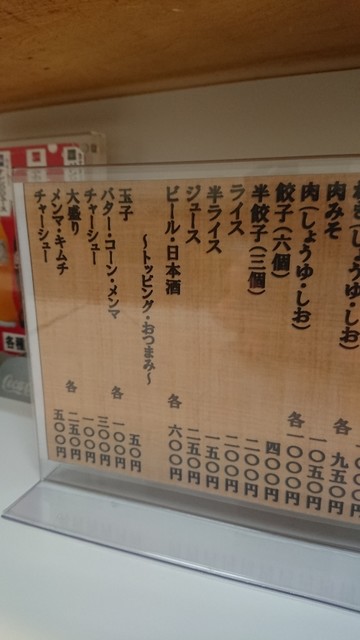 (しょうゆ・しお) 各 九五〇円
肉みそ 一〇五〇円
肉(しょうゆ・しお) 各一〇〇〇円
餃子(六個) 四〇〇円
半餃子(三個) 二〇〇円
ライス 二〇〇円
半ライス 一五〇円
ジュース 二五〇円
ビール・日本酒 各 六〇〇円
〜トッピング・おつまみ〜
玉子 五〇円
バター・コーン・メンマ 各 一〇〇円
チャーシュー 三〇〇円
大盛り 一〇〇円
メンマ・キムチ 各 二五〇円
チャーシュー 五〇〇円
各種